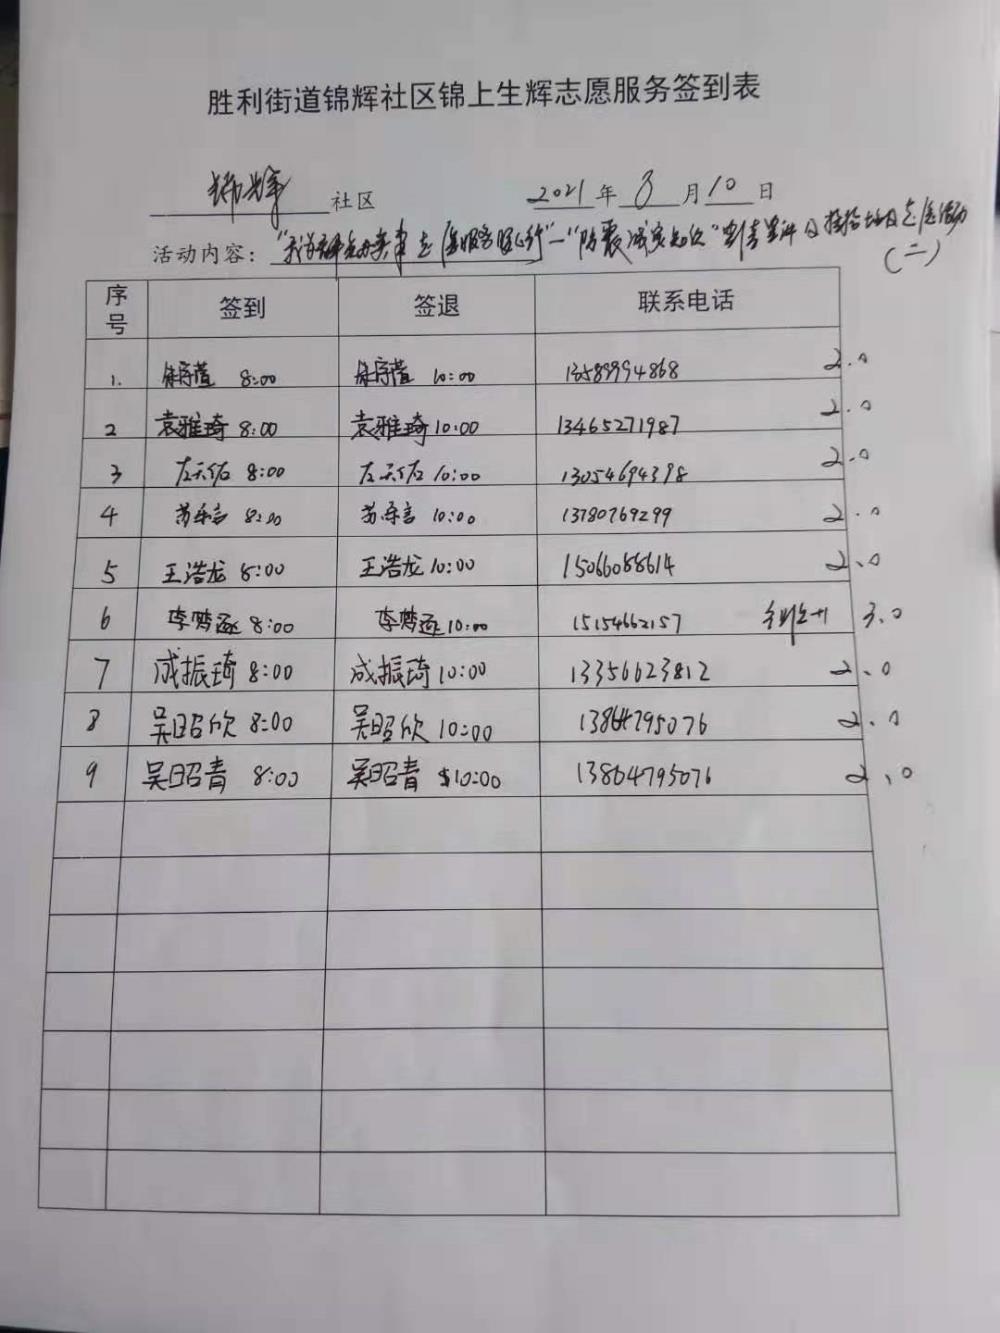 胜利街道锦辉社区锦上生辉志愿服务签到表
锦辉 社区 2021 年 8 月 10 日
活动内容: "我为群众办实事志愿服务暖心行"—"防震减灾知识"宣讲及捡拾垃圾志愿活动
(二)
序号 签到 签退 联系电话
1. 8:00 10:00 13589994868 2.0
2 袁雅琦 8:00 袁雅琦 10:00 13465271987 2.0
3 左天佑 8:00 左天佑 10:00 13054694398 2.0
4 苏乐言 8:00 苏乐言 10:00 13780769299 2.0
5 王浩龙 8:00 王浩龙 10:00 15066088614 2.0
6 李梦逐 8:00 李梦逐 10:00 15154662157 3.0
7 成振琦 8:00 成振琦 10:00 13356623812 2.0
8 吴昭欣 8:00 吴昭欣 10:00 13864795076 2.0
9 吴昭青 8:00 吴昭青 10:00 13864795076 2.0